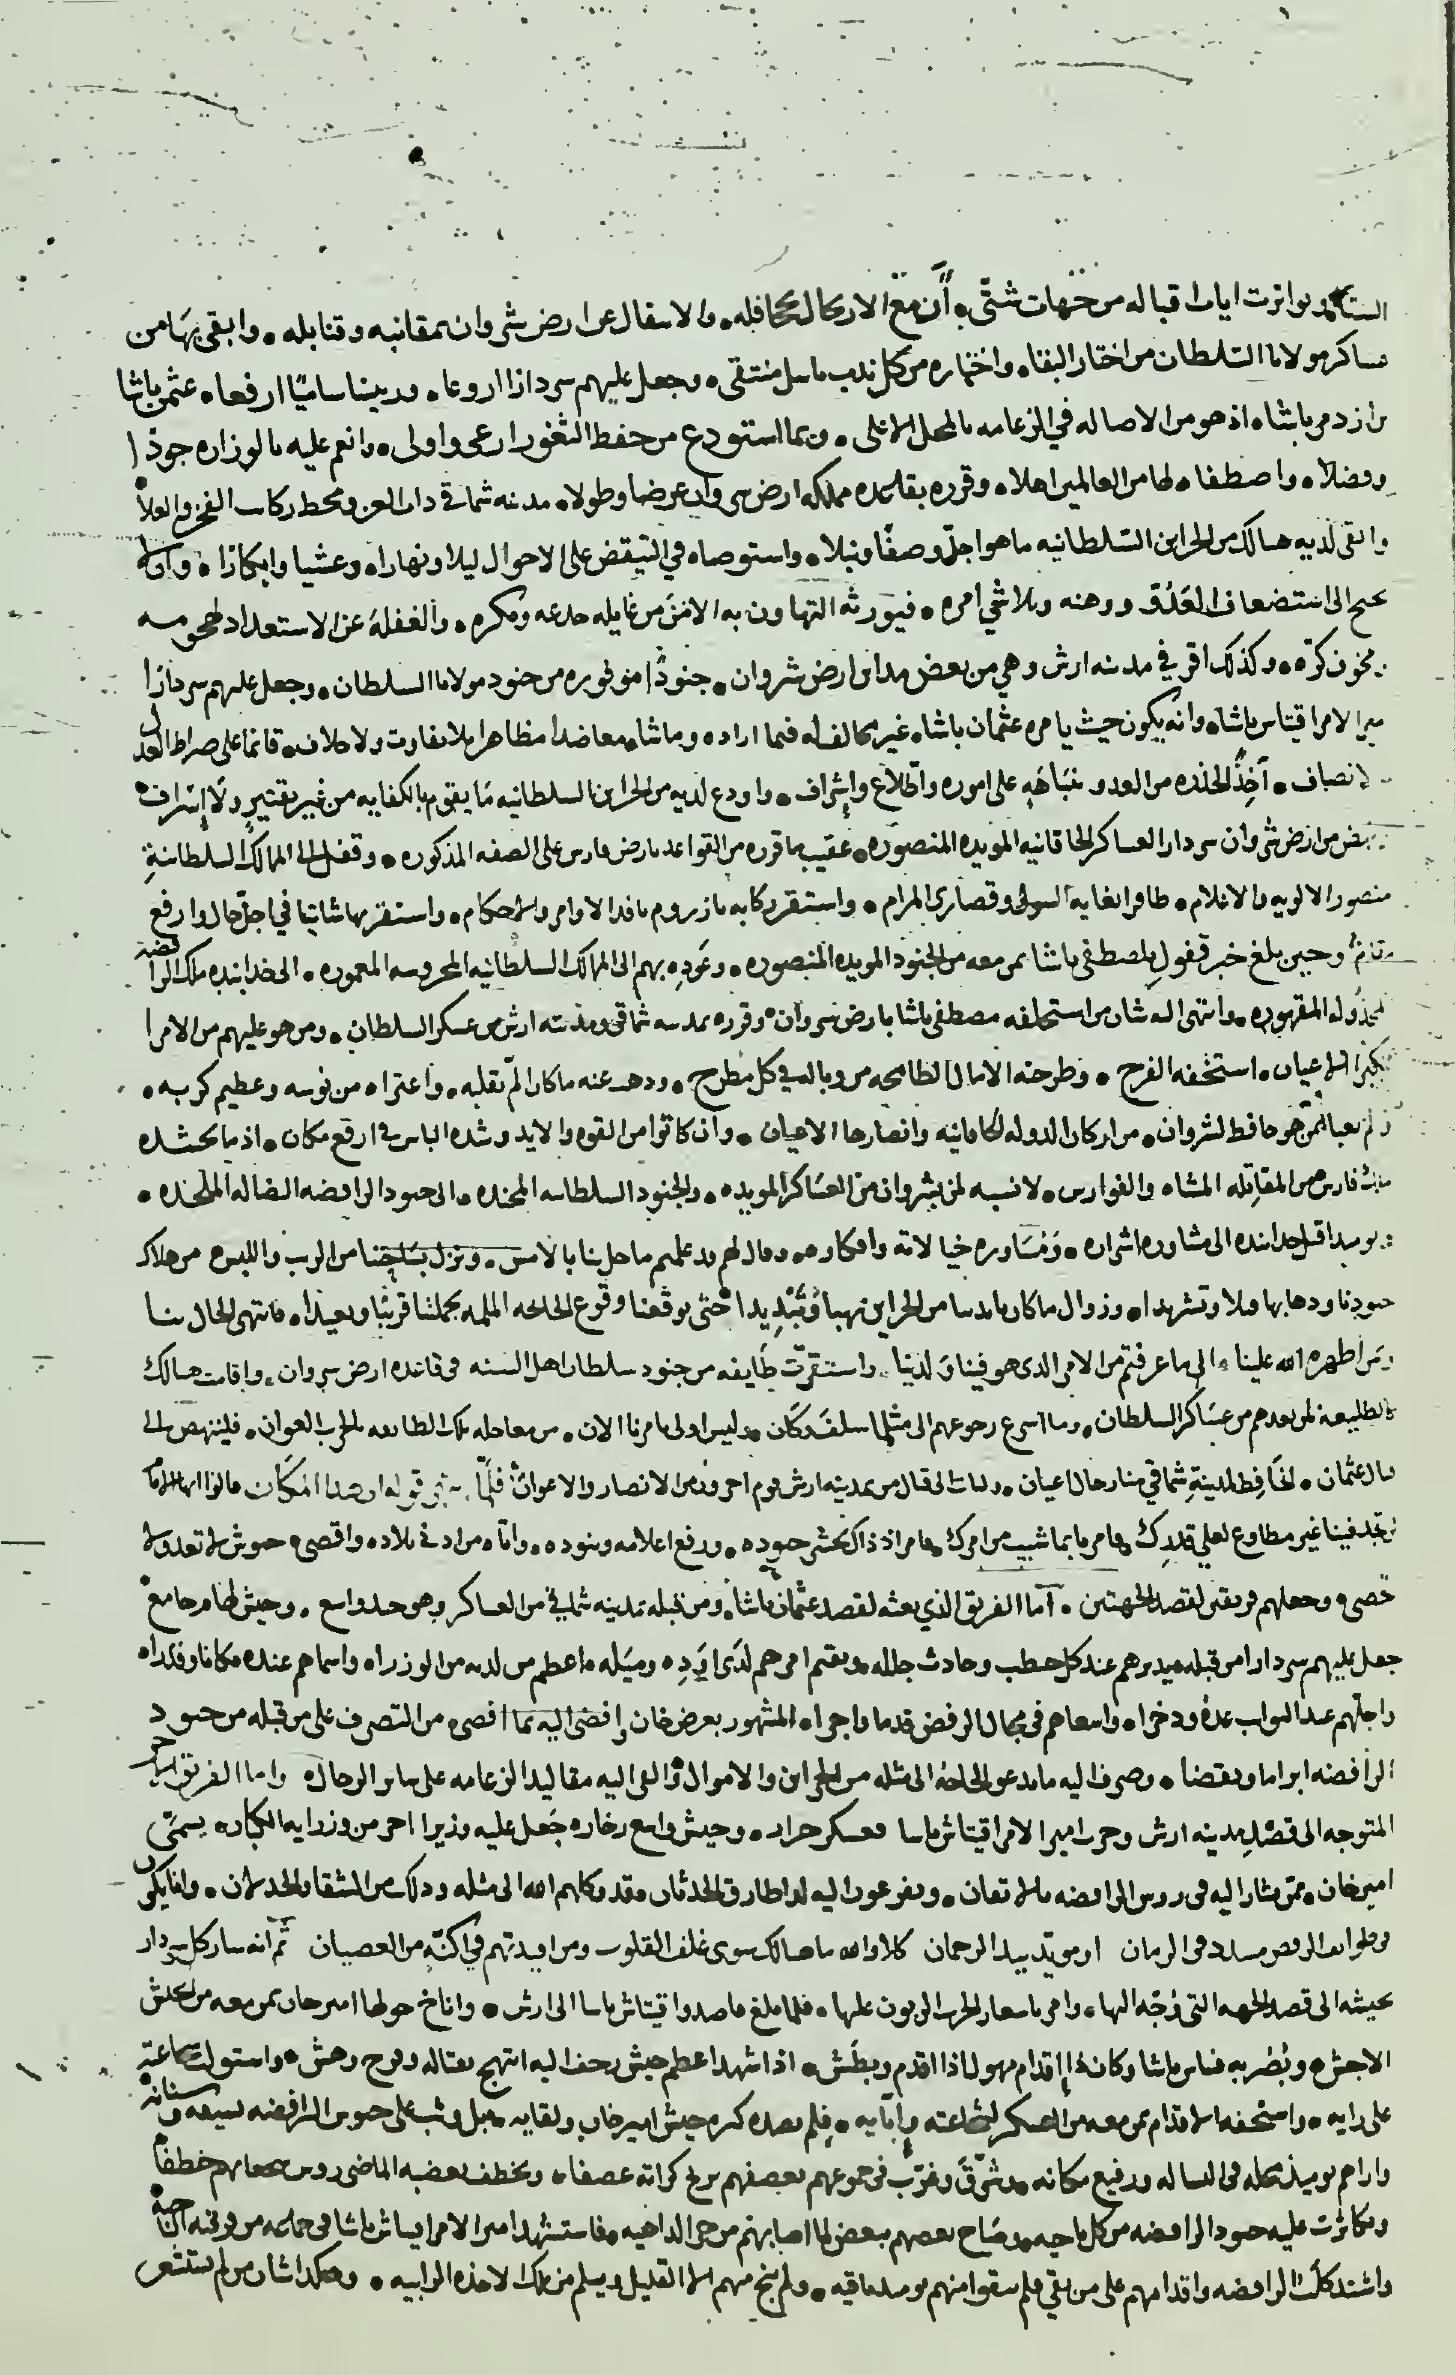 وتواترت ايات اقباله من جهات شتّى ٥ أن مع الاريحال بجحافله ٥ والانتقال عن ارض شروان بمقانبه وقنابله ٥ وابقى بها من
عساكر مولانا السلطان من اختار البقاء واختاره من كل ندب باسل منتقى ٥ وجعل عليهم سردارا اروعا ٥ ورييسا ساميًا ارفعا ٥ عثمن باشا
بن ازدمر باشا ٥ اذ هو من الاصاله في الزعامه بالمحل الاعلى ٥ وبما استودع من حفظ الثغور ارعى واولى ٥ وانعم عليه بالوزاره جودًا
وفضلا ٥ واصطفاه لها من العالمين اهلا ٥ وقرره بقاعده مملكه ارض شروان عرضا وطولا ٥ مدينه شماقي دار العز ومحط ركاب الفخر والعلا
وابقى لديه هنالك من الخزاين السلطانيه ما هو اجلّ وصفًا ونبلا ٥ واستوصاه في التيقض على الاحوال ليلا ونهارا ٥ وعشيا وابكارًا ٥ وان لا
يجنح الى استضعاف العدو ووهنه وتلاشي امره ٥ فيورثه التهاون به الامن من غايله خدعه ومكره ٥ والغفله عن الاستعداد
٥ وكذلك اقر في مدينه ارش وهي من بعض مداين ارض شروان ٥ جنودًا موفوره من جنود مولانا السلطان ٥ وجعل عليهم سردارًا
مير الامرا قيتاس باشا ٥ وانه يكون حيث يامره عثمان باشا ٥ غير مخالف له فيما اراده وما شاء معاضدا مظاهرا بلا تفاوت ولا خلاف ٥ قائما على صراط العدل
والانصاف ٥ آخذ الحذره من العدو بنباهه على اموره واطلاع واشراف ٥ واودع لديه من الخزاين السلطانيه ما يقوم بالكفايه من غير تقتير ولا إسراف ٥
ونهض من ارض شروان سردار العساكر الخاقانيه المويده المنصوره ٥ عقيب ما قرره من القواعد بارض فارس على الصفه المذكوره ٥ وقفل الى الممالك السلطانية
منصور الالويه والاعلام ٥ ظافرا بغايه السول وقصارى المرام ٥ واستقر ركابه بارزروم نافذ الاوامر والاحكام ٥ واستقر بها شاتيا في اجلّ حال وارفع
مقام ٥ وحين بلغ خبر قفول مصطفى باشا بمن معه من الجنود المويده المنصوره ٥ وعوده بهم الى الممالك السلطانيه المحروسه المعموره ٥ الى خدابنده ملك الرافضه
المخذوله المقهوره ٥ وانتهى اليه شان من استخلفه مصطفى باشا بارض شروان ٥ وقرره بمدينه شماقي ومدينه ارش من عسكر السلطان ٥ ومن هو عليهم من الامرا
الاعيان ٥ استخفه الفرح ٥ وطرحته الامال الطامحه من وباله في كل مطرح ٥ وذهب عنه ما كان الم بقلبه ٥ واعتراه من بوسه وعظيم كربه ٥
ولم يعبا بمن هو حافظ لشروان ٥ من اركان الدوله الخاقانيه وانصارها الاعيان ٥ وان كانوا من القوه والايد وشده الباس في ارفع مكان ٥ اذ ما يحشده
ملك فارس من المقاتله المشاه والفوارس ٥ لا نسبه لمن بشروان من العساكر المويده ٥ والجنود السلطانيه المنجده ٥ الى جنود الرافضه الضاله الملحده ٥
فيوميذ اقبل خدابنده الى مشاوره اشراره ٥ ومساوره خيالاته وافكاره ٥ وقال لهم قد علمتم ما حل بنا بالامس ٥ ونزل بساحتنا من الريب واللبس من هلاك
جنودنا وذهابها فلا وتشريدا ٥ وزوال ما كان بايدينا من الخزاين نهبا وتبديدا ٥ حتى توقعنا وقوع الجايحه الملمه بجملتنا قريبًا وبعيدًا ٥ فانتهى الحال بنا
ومن اظهره الله علينا ٥ الى ما عرفتم من الامر الذى هو فينا ولدينا ٥ واستقرّت طايفه من جنود سلطان اهل السنه في قاعده ارض شروان ٥ واقامت هنالك
كالطليعه لمن بعدهم من عساكر السلطان ٥ وما اسرع رجوعهم الى مثل ما سلف وكان ٥ وليس اولى بامرنا الان ٥ من معاجله تلك الطايفه بالحرب العوان ٥ فلينهض الى
قتال عثمان ٥ الحافظ لمدينة شماقي منا رجال اعيان ٥ وليات الى قتال من بمدينه ارش قوم اخرون من الانصار والاعوان ٥ فلما قوله في هذا المكان قالوا ايها الامام
لن تجد فينا غير مطاوع لعلي قدرك ٥ فامر بما شيت من امرك ٥ فامر اذ ذاك بحشر جنوده ٥ ورفع اعلامه وبنوده ٥ واتاه من ادنى بلاده واقصى ٥ جيوش لا تعد ولا
تحصى ٥ وجعلهم فريقين لقصد الجهتين ٥ أما الفريق الذي بعثه لقصد عثمان باشا ٥ ومن قبله بمدينه شماقي من العساكر وهو جند واسع ٥ وجيش لهام جامع ٥
جعل عليهم سردارا من قبله يدبرهم عند كل خطب وحادث جلله ٥ ويقيم امرهم لدى اوده وميله ٥ اعظم من لديه من الوزرا ٥ واسماهم عنده مكانا وقدرا ٥
واجلهم عند النوايب عدة وذخرا ٥ واسعاهم في مجال الرفض قدما واجرا ٥ المشهور بعرض خان وافضى اليه بما اقصى من التصرف على من قبله من جنود
الرافضه ابراما ونقضا ٥ وصرف اليه ما يدعو الحاجه الى مثله من الخزاين والاموال ٥ والقى اليه مقاليد الزعامه على ساير الرجال ٥ واما الفريق الاخر
المتوجه الى قصد مدينه ارش وحرب امير الامرا قيتاس باشا فعسكر جرار ٥ وجيش واسع زخار ٥ جعل عليه وزيرا اخر من وزرايه الكبار ٥ يسمّى
امير خان ٥ ممن يشار اليه في روس الرافضه بالاتقان ٥ ويفزعون اليه لدا طارق الحدثان وقد وكلهم الله الى مثله وذلك من الشقا والخذلان ٥ وانى يكون
في طوايف الرفض مسدد في الزمان او مويّد بيد الرحمان كلا والله ما هنالك سوى غلف القلوب ومن افيدتهم في اكنّه من العصيان ثم انه سار كل سردار
بجيشه الى قصد الجهه التي وجّه اليها ٥ وامر باسعار الحرب الزبون عليها ٥ فلما بلغ قاصدوا قيتاس باشا الى ارش ٥ واناخ حولها امير خان بمن معه من الجيش
الاجش ٥ وبصر به قيتاس باشا وكان ذا إقدام مهول اذا اقدم وبطش ٥ اذا شهدا عظم جيش زحف اليه ابتهج بقتاله وفرح وهش ٥ واستولت شجاعته
على رايه ٥ واستخفه الاقدام بمن معه من العسكر لشجاعته وإبايه ٥ فلم يصده كثره جيش امير خان ولقايه ٥ بل وثب على جيوش الرافضه بسيفه وسنانه
واراهم يوميذ محله في البساله ورفيع مكانه ٥ وشرّق وغرّب في جموعهم يعصفهم بريح كراته عصفا ٥ ويخطف بعضبه الماضي روس شجعانهم خطفا ٥
وتكاثرت عليه جنود الرافضه من كل ناحيه ٥ وصاح بعضهم ببعض لما اصابتهم من حر الداهيه ٥ فاستشهد امير الامرا قيتاس باشا في جماعه من فرقته الناجية
واشتد كلب الرافضه واقدامهم على من بقي فلم يبقوا منهم يوميذ باقيه ٥ ولم ينج منهم الا القليل ويسلم من تلك الاخذه الرابيه ٥ وهكذا شان من لم يستشعر